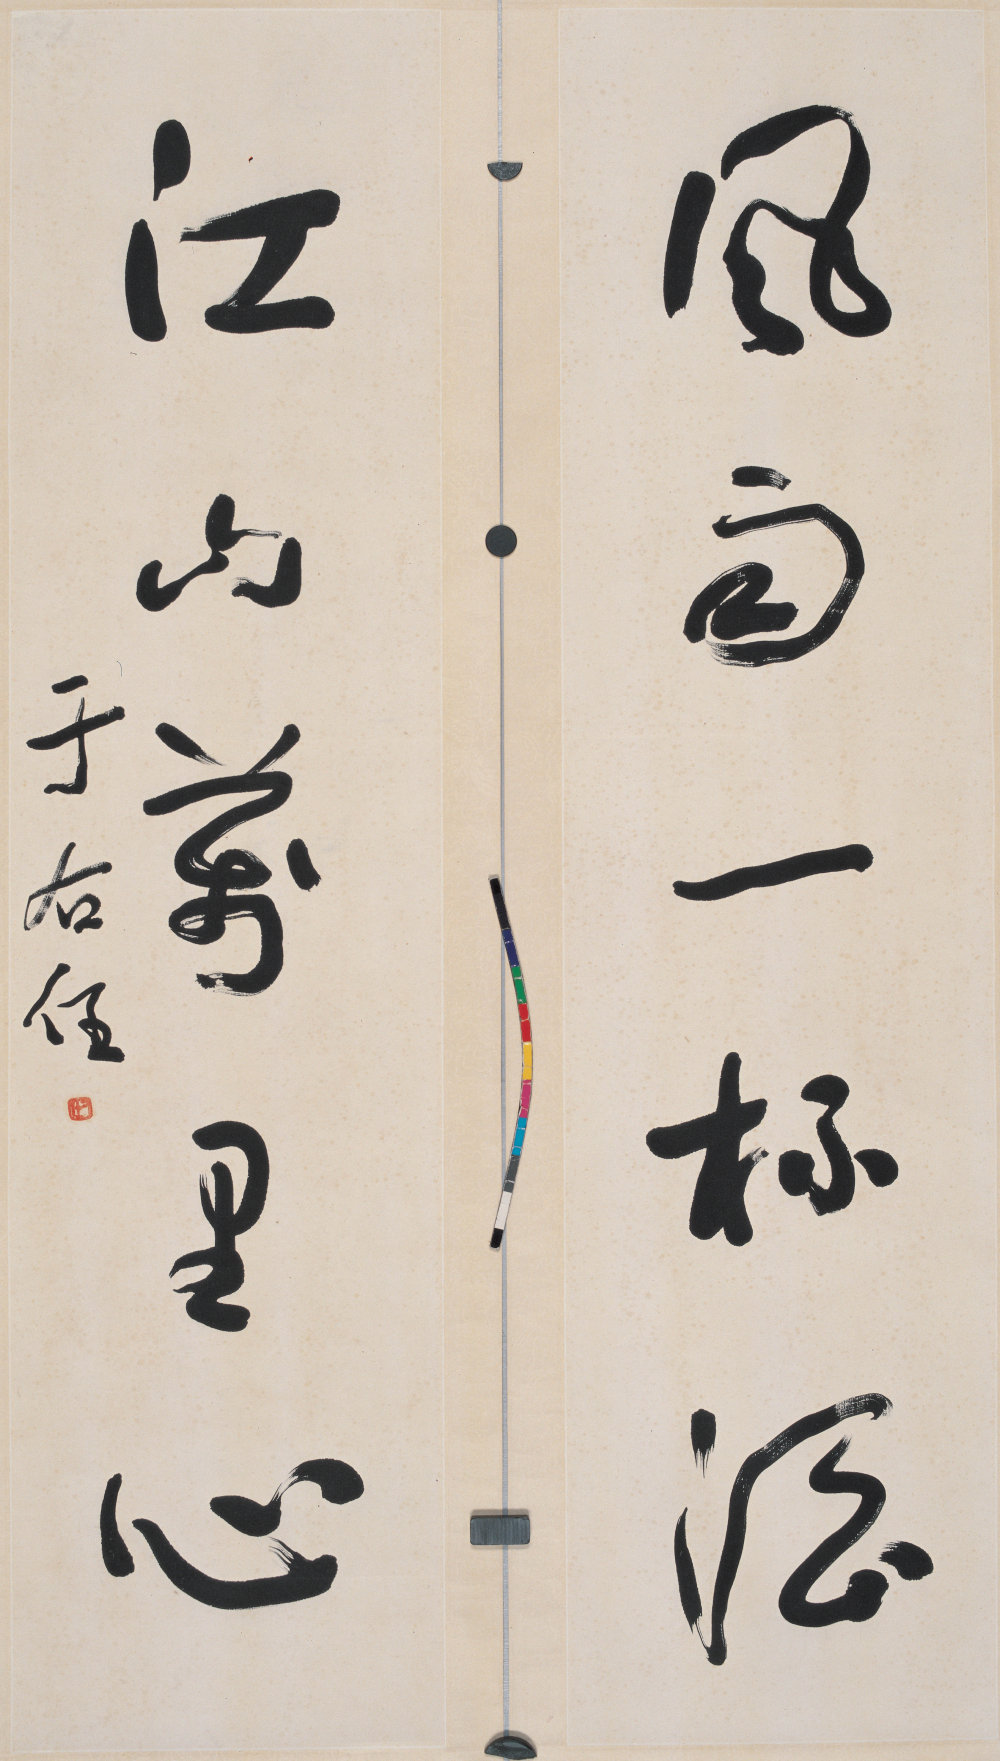 風雨一杯酒
江山萬里心
于右任